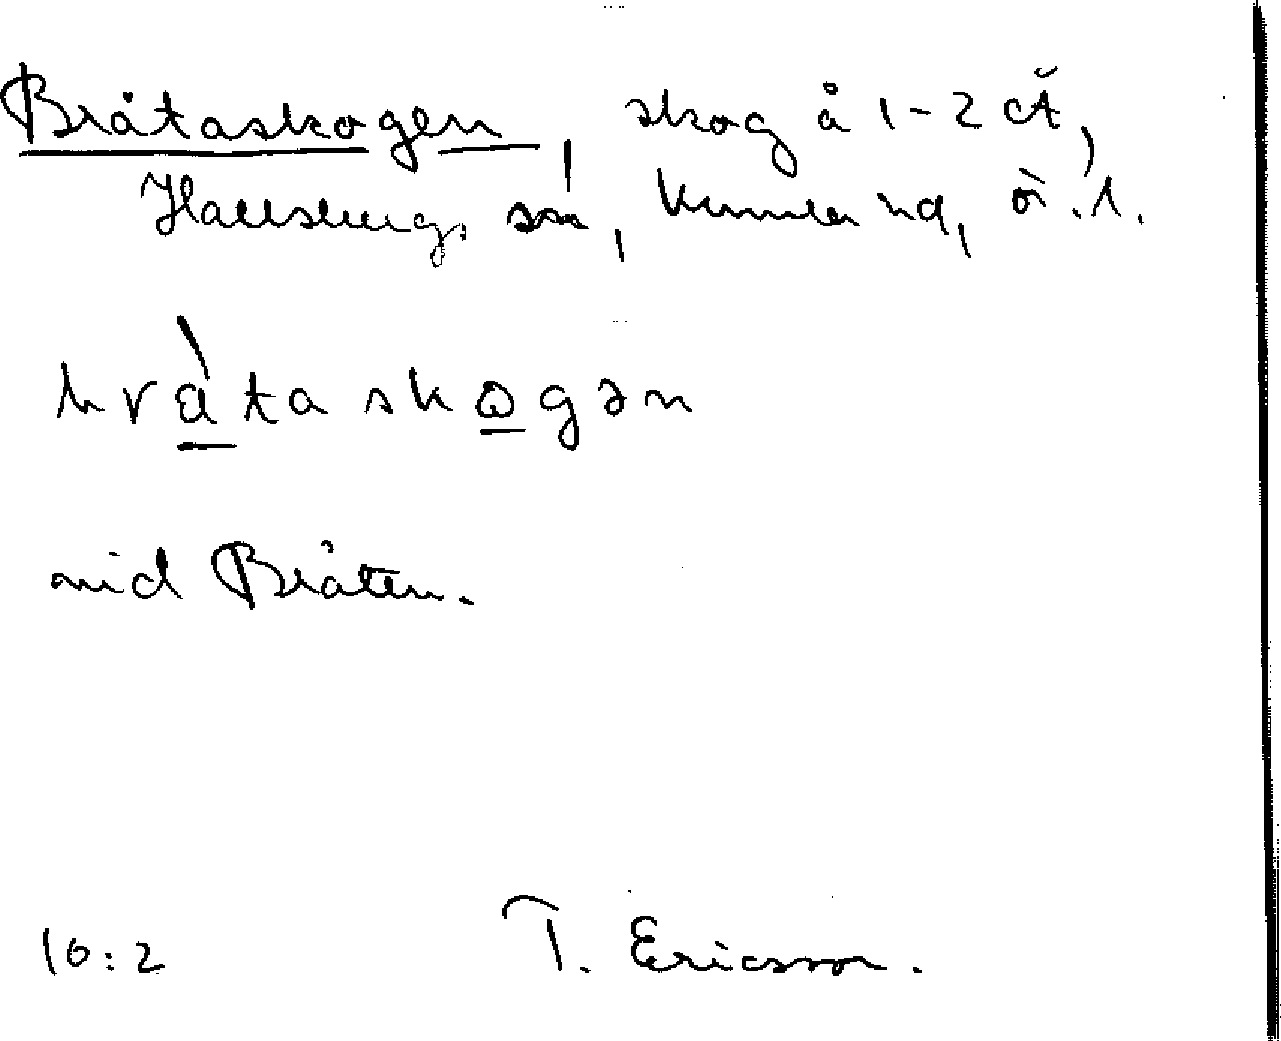 Bråtaskogen, skog å 1-2 cÅ,
Hallsbergs sn, Kumla hd, ö.l.
bråtaskogən
vid Bråten.
10:2 T. Ericsson.